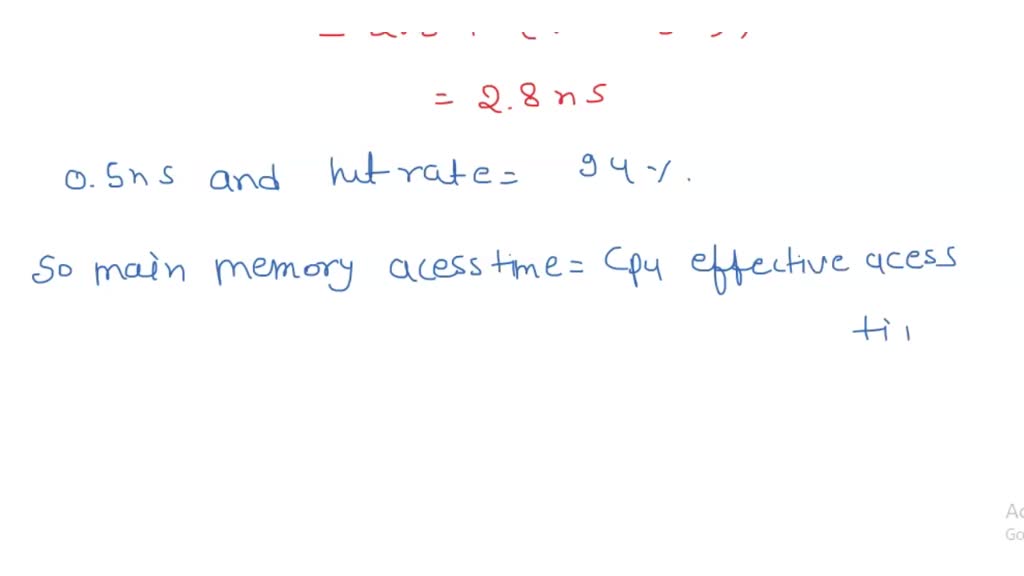 = 2.8 ns
0.5ns and hit rate = 94%.
So main memory acess time = Cpu effective acess
ti